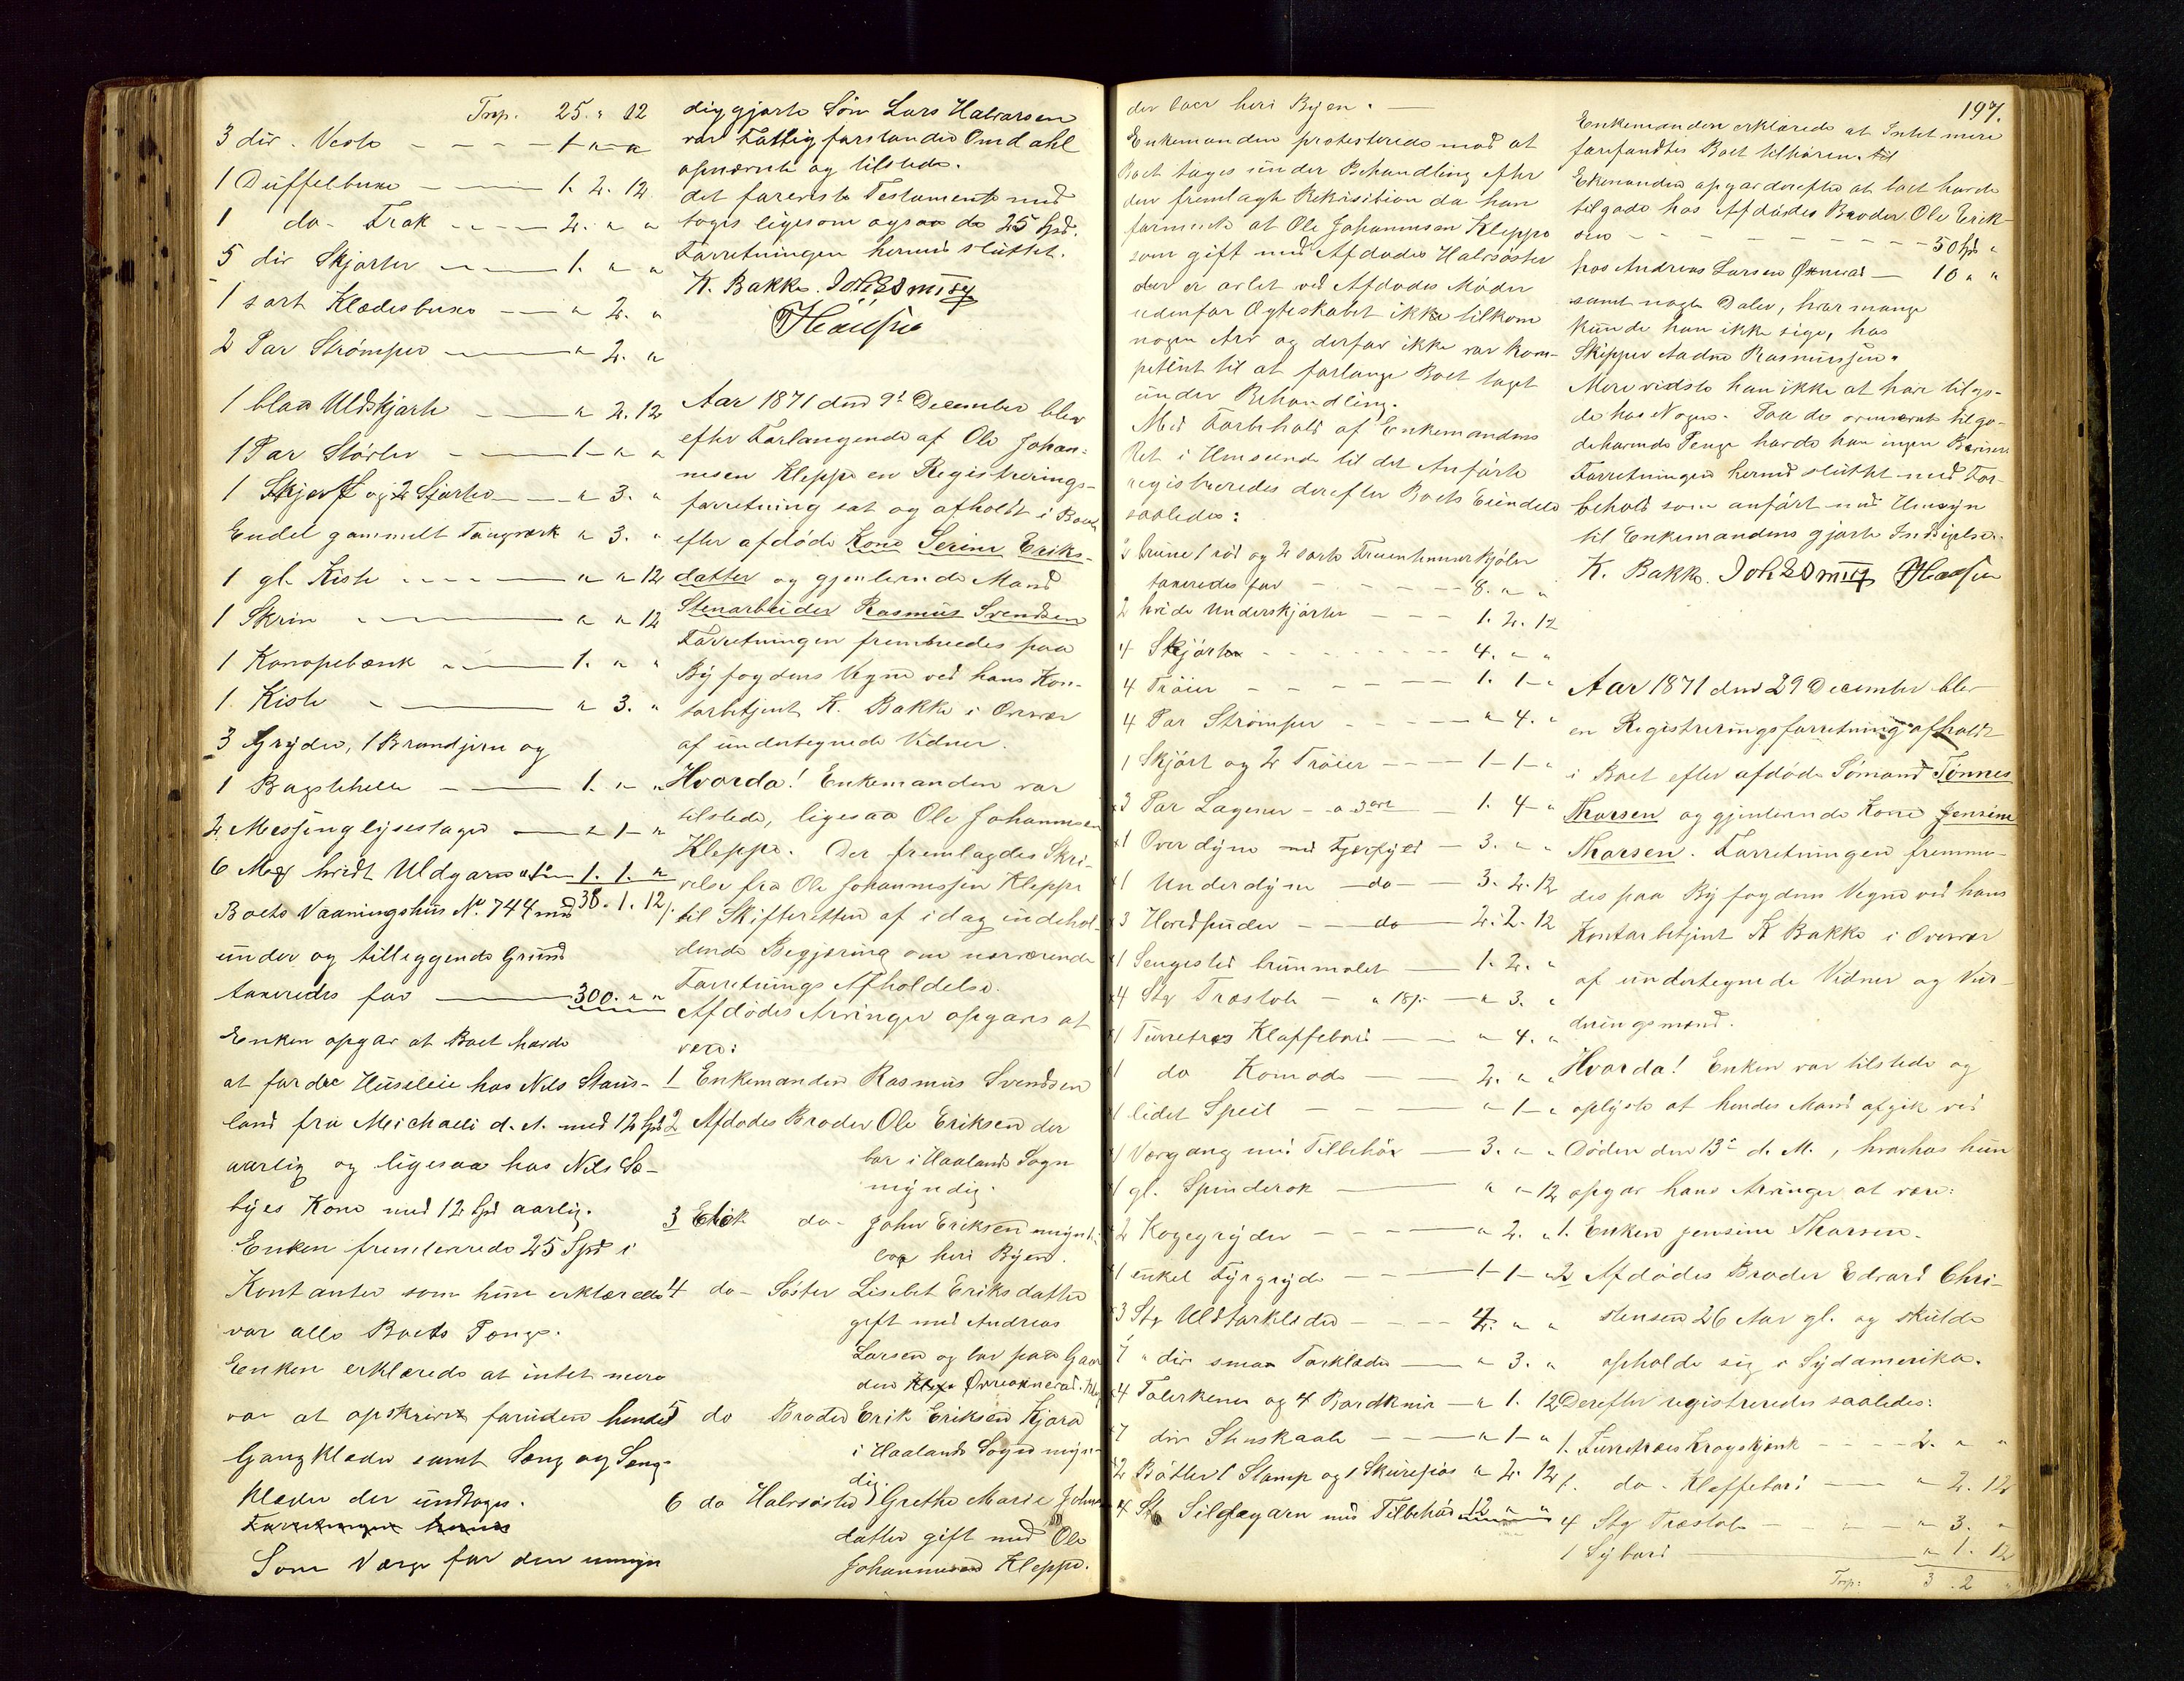 Trsp. 25. " 12
3 div. Veste - - - - 1 - " - "
1 Duffelbuxe - - - 1. 2. 12
1 do - Frak - - - - 2. " "
5 div Skjorter - - - 1. " "
1 sort Klædesbuxe - - " 2. "
2 Par Strömper - - - " 2. "
1 blaa Uldskjorte - - " 2. 12
1 Par Støvler - - - 1 - " "
1 Skjerf og 2 Sjorte - - " 3. "
Endel gammelt Tougværk " 3. "
1 gl. Kiste - - - - " " 12
1 Skrin - - - " " 12
1 Kanapebænk - - - 1. " "
1. Kiste - - - " 3. "
3 Gryder, 1 Brandjern og
1 Bagstehelle - - - 1. " "
2 Messinglysestager - - " 1 - "
6 Mrk hvidt Uldgarn - 1. 1. "
Boets Vaaningshus No. 744 med 38. 1. 12
under og tilliggende Grund
taxeredes for - - - 300. " "
Enken opgav at Boet havde
at fordre Husleie hos Nils Staus-
land fra Michaeli d. A. med 12 Spd
aarlig og ligesaa hos Nils Sæ-
byes Kone med 12 Spd aarlig.
Enken fremleverede 25 Spd i
Kontanter som hun erklærede
var alle Boets Penge.
Enken erklærede at intet mere
var at opskrive foruden hendes
Gangklæder samt Seng og Seng-
klæder der undtoges.
Forretningen hermed
Som Værge for den umyn
dig gjorte Søn Lars Halvorsen
var Fattigforstander Omdahl
opnævnt og tilstede.
det foreviste Testamente med
toges ligesom ogsaa de 25 Spd.
Forretningen hermed sluttet.
K. Bakke. Joh
Hansen
Aar 1871 den 9de December blev
efter Forlangende af Ole Johan-
nesen Kleppe en Registrerings-
forretning sat og afholdt i Boet
efter afdøde Kone Serine Eriks-
datter og gjenlevende Mand
Stenarbeider Rasmus Svendsen
Forretningen fremmedes paa
Byfogdens Vegne ved hans Kon-
torbetjent K. Bakke i Overvær
af undertegnede Vidner.
Hvorda! Enkemanden var
tilstede, ligesaa Ole Johannesen
Kleppe. Der fremlagdes Skri-
velse fra Ole Johannessen Kleppe
til Skifteretten af idag indehol-
dende Begjæring om nærværende
Forretnings Afholdelse.
Afdødes Arvinger opgaves at
være:
1 Enkemanden Rasmus Svendsen
2 Afdødes Broder Ole Eriksen der
bor i Haalands Sogn
myndig.
3 do - John Eriksen myndi
bor heri Byen.
4 do - Søster Lisebet Eriksdatter
gift med Andreas
Larsen og bor paa Gaar
den
5 do Broder Erik Eriksen Kjora
i Haalands Sogn myn-
dig
6 do Halvsøster Grethe Marie Johan
datter gift med Ole
Johannesen Kleppe.
der boer heri Byen. -
Enkemanden protesterede mod at
Boet toges under Behandling efter
den fremlagte Rekvisition da han
formente at Ole Johannesen Kleppe
som gift med Afdødes Halvsøster
der er avlet ved Afdødes Moder
udenfor Ægteskabet ikke tilkom
nogen Arv og derfor ikke var kom-
petent til at forlange Boet taget
under Behandling.
Med Forbehold af Enkemandens
Ret i Henseende til det Anførte
registreredes derefter Boets Eiendele
saaledes:
2 brune 1 rød og 2 sorte Fruentimmerkjoler
taxeredes for - - - 8. " "
2 hvide Underskjorter - - - 1. 2. 12
4 Skjörter - - - 4. " "
4 Trøier - - - 1. 1 - "
4 Par Strömper - - - " 4. "
1 Skjört og 2 Trøier - - - 1 - 1 - "
3 Par Lagener - a 3 ort - 1. 4 - "
1 Overdyne med Fjærfyld - 3. " "
1 Underdyne - do - - 3. 2. 12
3 Hovedpuder - - do - 2. 2. 12
1 Sengested brunmalet - - 1. 2. "
4 Stk Træstole - a 18 s - " 3. "
1 Furretræs Klaffebord - - " 4. "
1 do Komode - - 2. " "
1 lidet Speil - - - " 1 - "
1 Vævgang med Tilbehør - 3. " "
1 gl. Spinderok - - " " 12
2 Kogegryder - - - " 2. "
1 enkel Fyrgryde - - - 1 - 1 - "
3 Stk Uldtørklæder - - - 4. " "
7 " div smaa Tørklæder - - " 3. "
4 Talerkener og 4 Bordknive - " 1. 12
7 div Stenskaale - - - " 1 - "
2 Bøtter 1 Stamp og 1 Skurepios " 2. 12
4 Stk Sildegarn med Tilbehør 12 " "
197.
Enkemanden erklærede at Intet mere
forefandtes Boet tilhørende. til
Ekemanden opgav derefter at boet havde
tilgode hos Afdødes Broder Ole Erik-
sen - - - - - 50 Spd "
hos Andreas Larsen - 10 " "
samt nogle Daler, hvor mange
kunde han ikke sige, hos
Skipper Aadne Rasmussen.
Mere vidste han ikke at have tilgo-
de hos Nogen. Paa de ommeldt tilgo-
dehavende Penge havde han ingen Beviser
Forretningen hermed sluttet med For-
behold som anført med Hensyn
til Enkemandens gjorte Indsigelse.
K. Bakke. Joh Hansen
Aar 1871 den 29 December blev
en Registreringsforretning afholdt
i Boet efter afdøde Sömand Tønnes
Thorsen og gjenlevende Kone Jensine
Thorsen. Forretningen fremme-
des paa Byfogdens Vegne ved hans
Kontorbetjent K Bakke i Overvær
af undertegnede Vidner og Vur-
deringsmænd.
Hvorda! Enken var tilstede og
oplyste at hendes Mand afgik ved
Døden den 13de d. M., hvorhos hun
opgav hans Arvinger at være:
1. Enken Jensine Thorsen.
2 Afdødes Broder Edvard Chri-
stensen 26 Aar gl. og skulde
opholde sig i Sydamerika.
Derefter registreredes saaledes:
1. Furretræs Kragskjænk - - - 2. " "
1. do - Klaffebord - - " 2. 12
4 Stk Træstole - - - " 3. "
1 Sybord - - - " 1. 12
Trsp: 3. 2 "